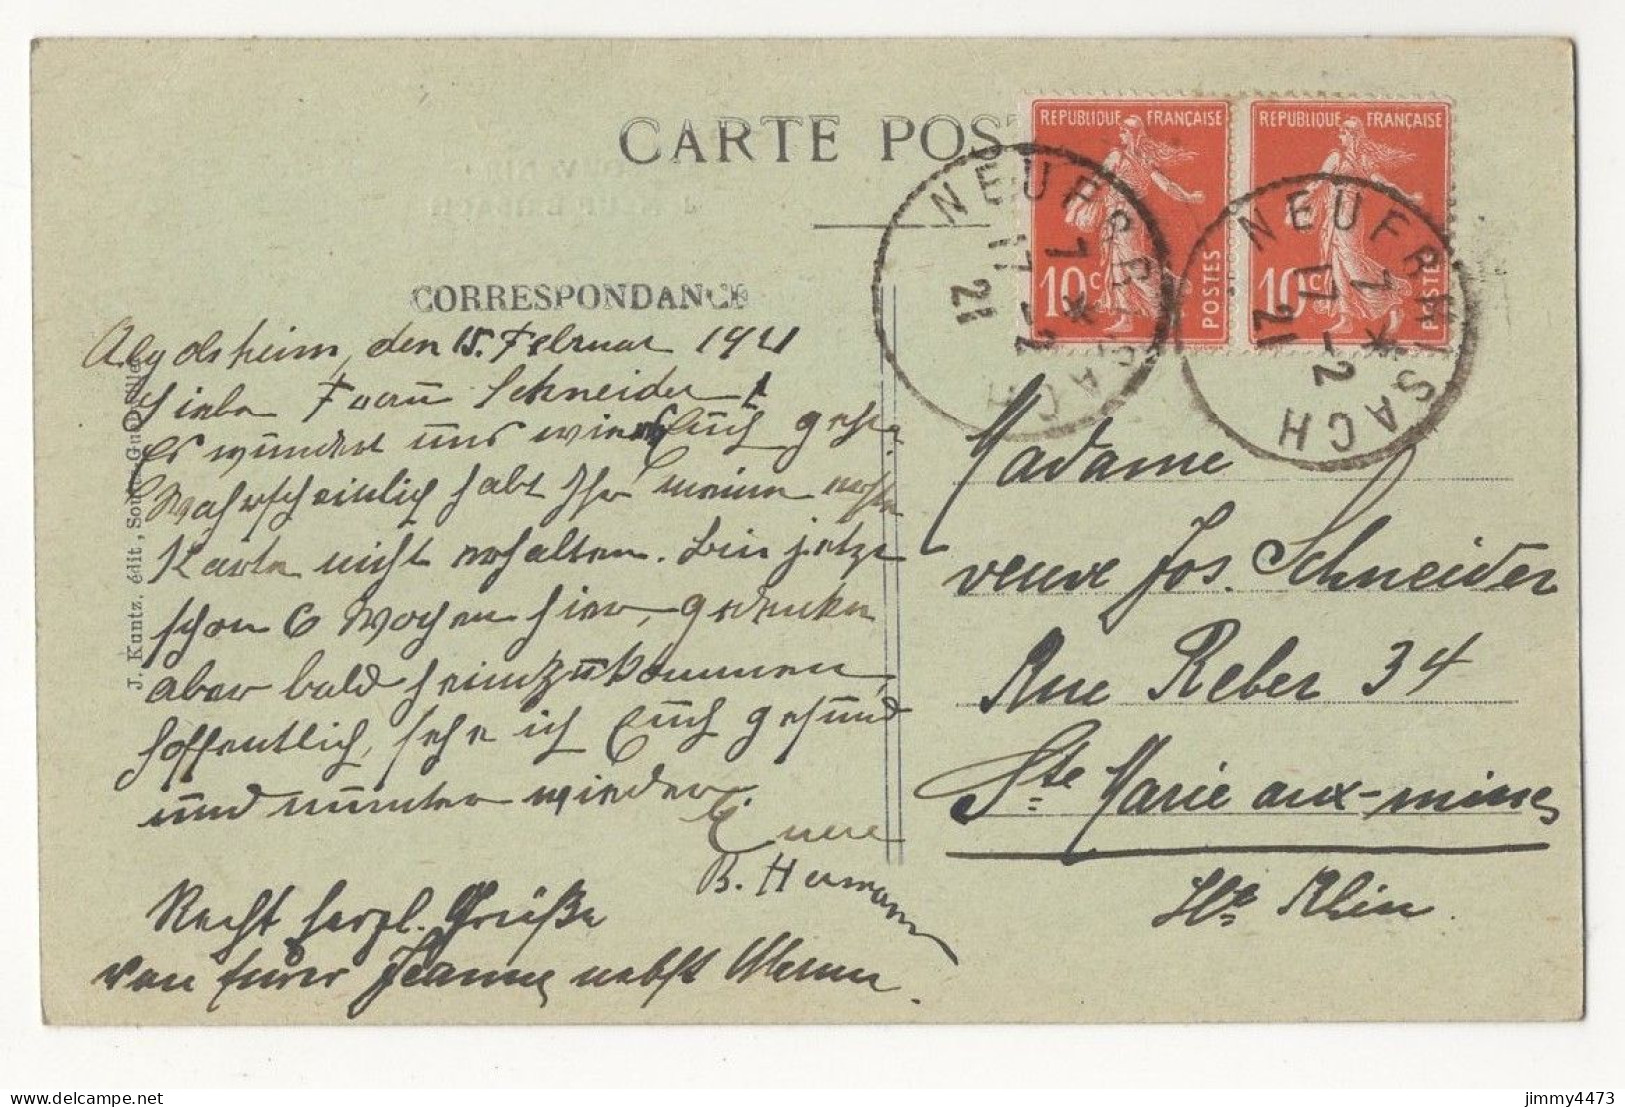 CARTE POS
REPUBLIQUE FRANÇAISE
10c POSTES
REPUBLIQUE FRANÇAISE
10c POSTES
NEUFBRISACH
7 * 17-2 21
NEUFBRISACH
7 * 17-2 21
CORRESPONDANCE
den 15. Februar 1921
Liebe Frau Schneider!
Es wundert uns wie es Euch geht.
Wahrscheinlich habt Ihr meine erste
Karte nicht erhalten. Bin jetzt
schon 6 Wochen hier, gedenke
aber bald heimzukommen,
hoffentlich, sehe ich Euch gesund
und munter wieder.
Eure
B. Hermann
Recht herzl. Grüße
von Eurer Jeanne nebst
Madame
veuve Jos. Schneider
Rue Reber 34
Ste Marie aux-mines
Ht Rhin.
J. Kuntz. édit.,
jimmy4473